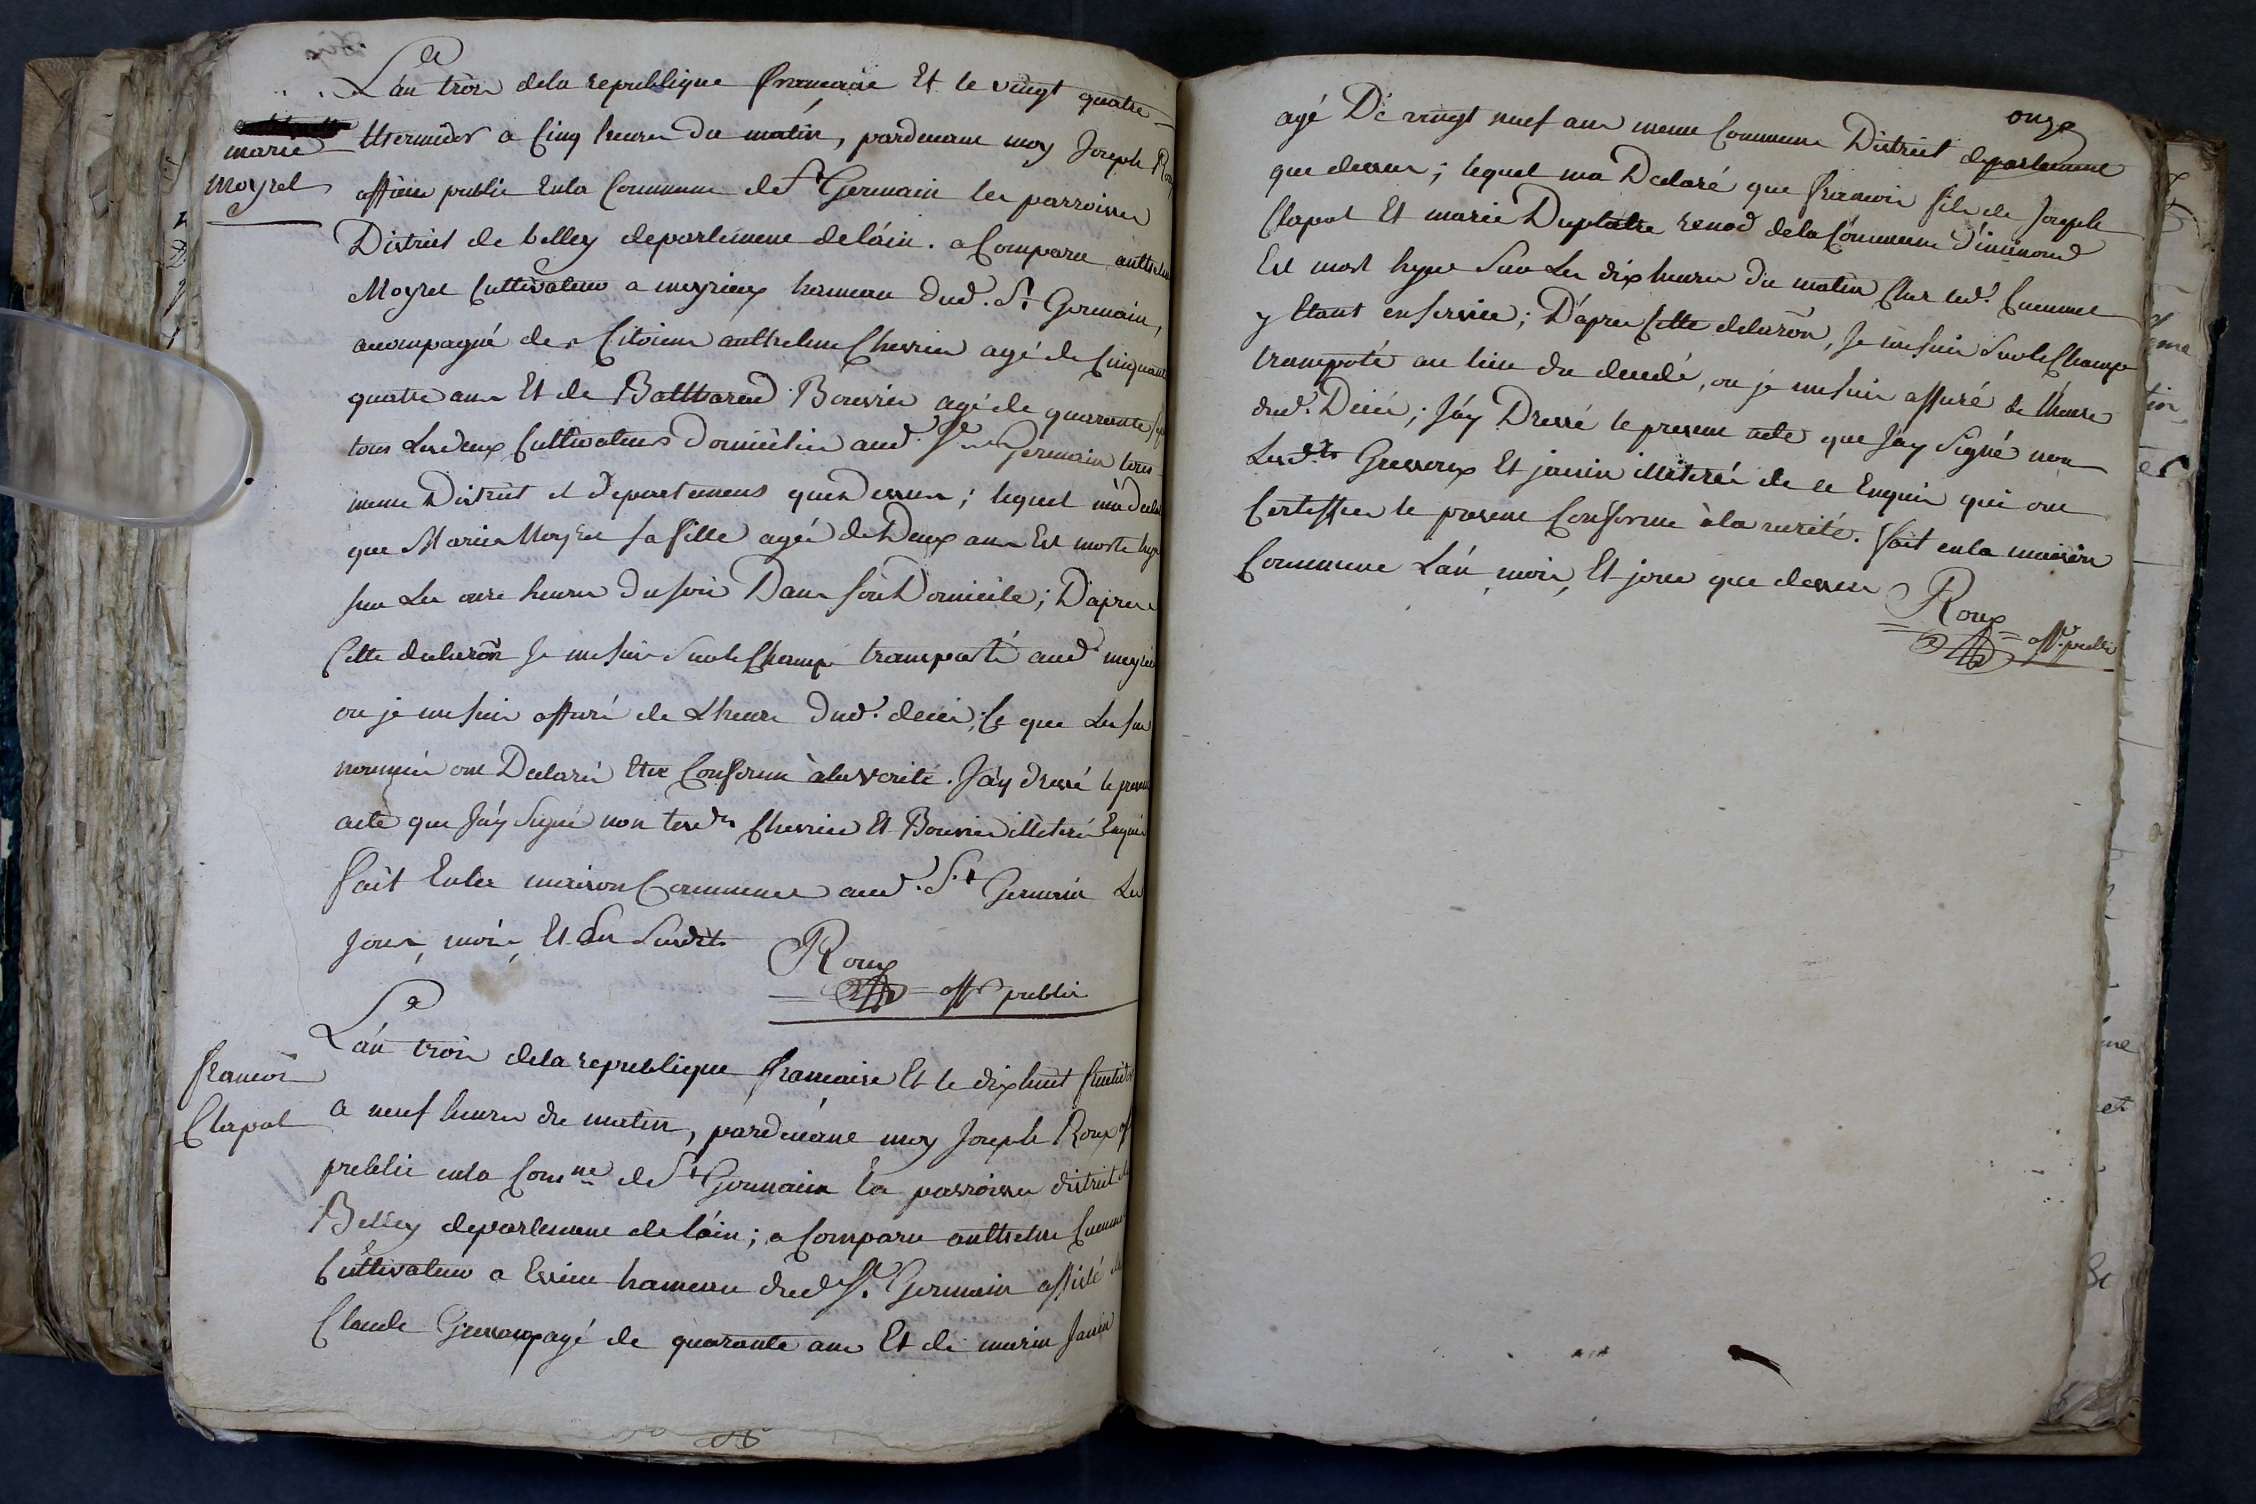 L'an trois dela republique francaise Et le vingt quatre
marie
moyret
thermidor a Cinq heures du matin, pardevant moy Joseph Roux
officier public Enla Commune de St Germain les parroisses
District de belley departement de l'ain. a Comparu anthelme
Moyret Cultivateur a meyrieux hameau dud. St Germain,
acompagné des Citoiens anthelme Chevrier agé de Cinquante
quatre ans Et de Balthazard Bouvier agé de quarante sept
tous Lesdeux Cultivateurs Domicilies aud. St Germain tous
meme District et departement que Dessus; lequel m'a declaré
que Marie Moyret sa fille agé de Deux ans Est morte hyer
sur Les onze heures Dusoir Dans son Domicile; D'apres
Cette declaron Je me suis Surle Champ transporté aud. meyrieux
ou je me suis assuré de Lheure dud. deces; Ce que Les sus
nommés ont Declaré Etre Conforme àlaverité. J'ay dressé le present
acte que J'ay Signé non lesds Chevrier Et Bouvier illiterés Enquis
fait Enla maison Commune aud. St Germain Les
Jour, mois, Et an Susdits
Roux
off. public
L'an trois dela republique francaise Et le dixhuit fructidor
francois
Clapot
a neuf heures du matin, pardevant moy Joseph Roux off
public enla Comne de St Germain les parroisses district de
Belley departement de l'ain; a Comparu anthelme
Cultivateur a Essieu hameau dud St. Germain assisté de
Claude Gressoux agé de quarante ans Et de marin Janin
onze
agé De vingt neuf ans meme Commune District departement
que dessus; lequel m'a Declaré que francois fils de Joseph
Clapot Et marie Duplatre renod dela Commune d'inimond
Est mort hyer Sur Les dix heures du matin Chez led.
y Etant enservice; D'apres Cette declaron, Je me suis Surle Champ
transporté au lieu du decedé, ou je me suis assuré de l'heure
dud. Deces; J'ay Dressé le present acte que J'ay Signé non
Lesdts Gressoux Et janin illiterés de ce Enquis qui ont
Certiffier le present Conforme à la verité. fait enla maison
Commune L'an, mois, Et jour que dessus
Roux
off. public